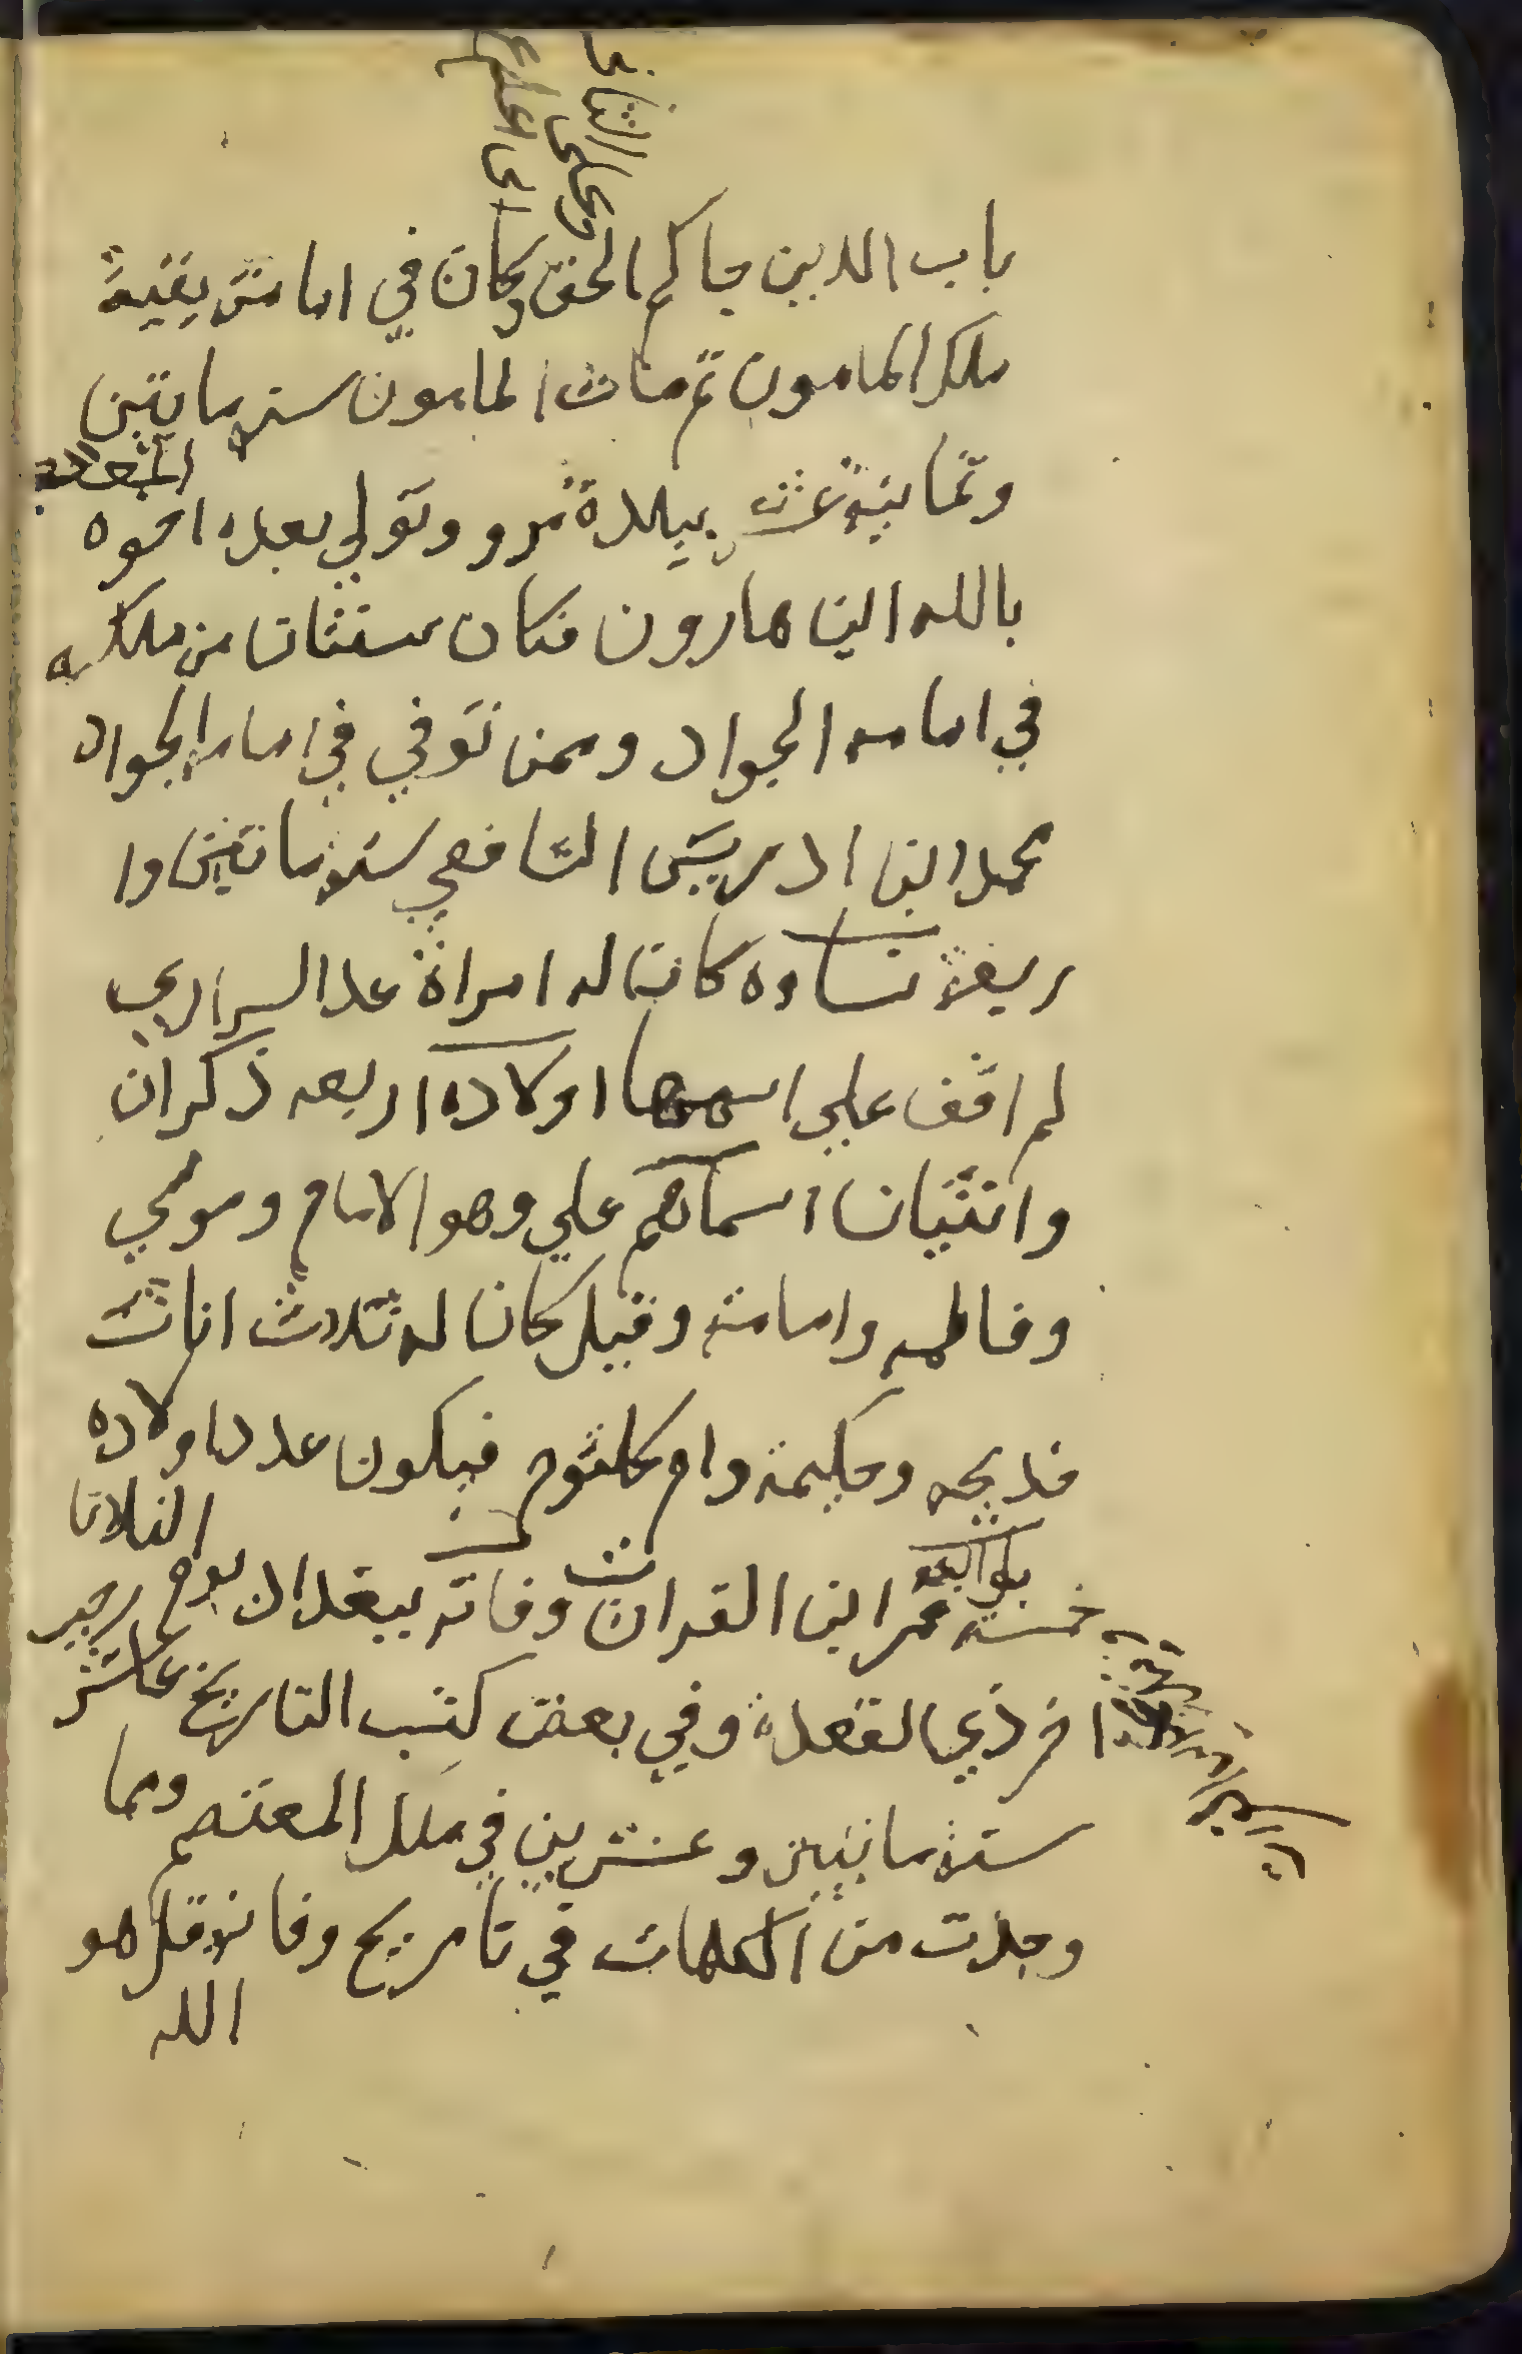 باب الدين جاكم الحق وكان في امامته بقية
ملك المامون ثم مات المامون سنة ماتين
وثمانية عشر ببلدة مرو وتولي بعده اخوه المعتصم
بالله ابن هارون فكان سنتان من ملكه
في امامه الجواد وممن توفي في امامه الجواد
محمد ابن ادريس الشافعي سنة ماتين وا
ربعة نساوه كانت له امراة عدا السراري
لم اقف علي اسمها اولاده اربعه ذكران
وانثيان اسماهم علي وهو الامام وموسي
وفاطمه وامامة وقيل كان له ثلاث اناث
خديجه وحكيمة وام كلثوم فيكون عدد اولاده
خمسة بوابه عمر ابن الفرات وفاته ببغداد يوم الثلاثا
اخر ذي القعدة وفي بعض كتب التاريخ عاشر رجب
سنة ماتين وعشرين في ملك المعتصم ومما
وجدت من الكلمات في تاريخ وفاته قل هو
الله